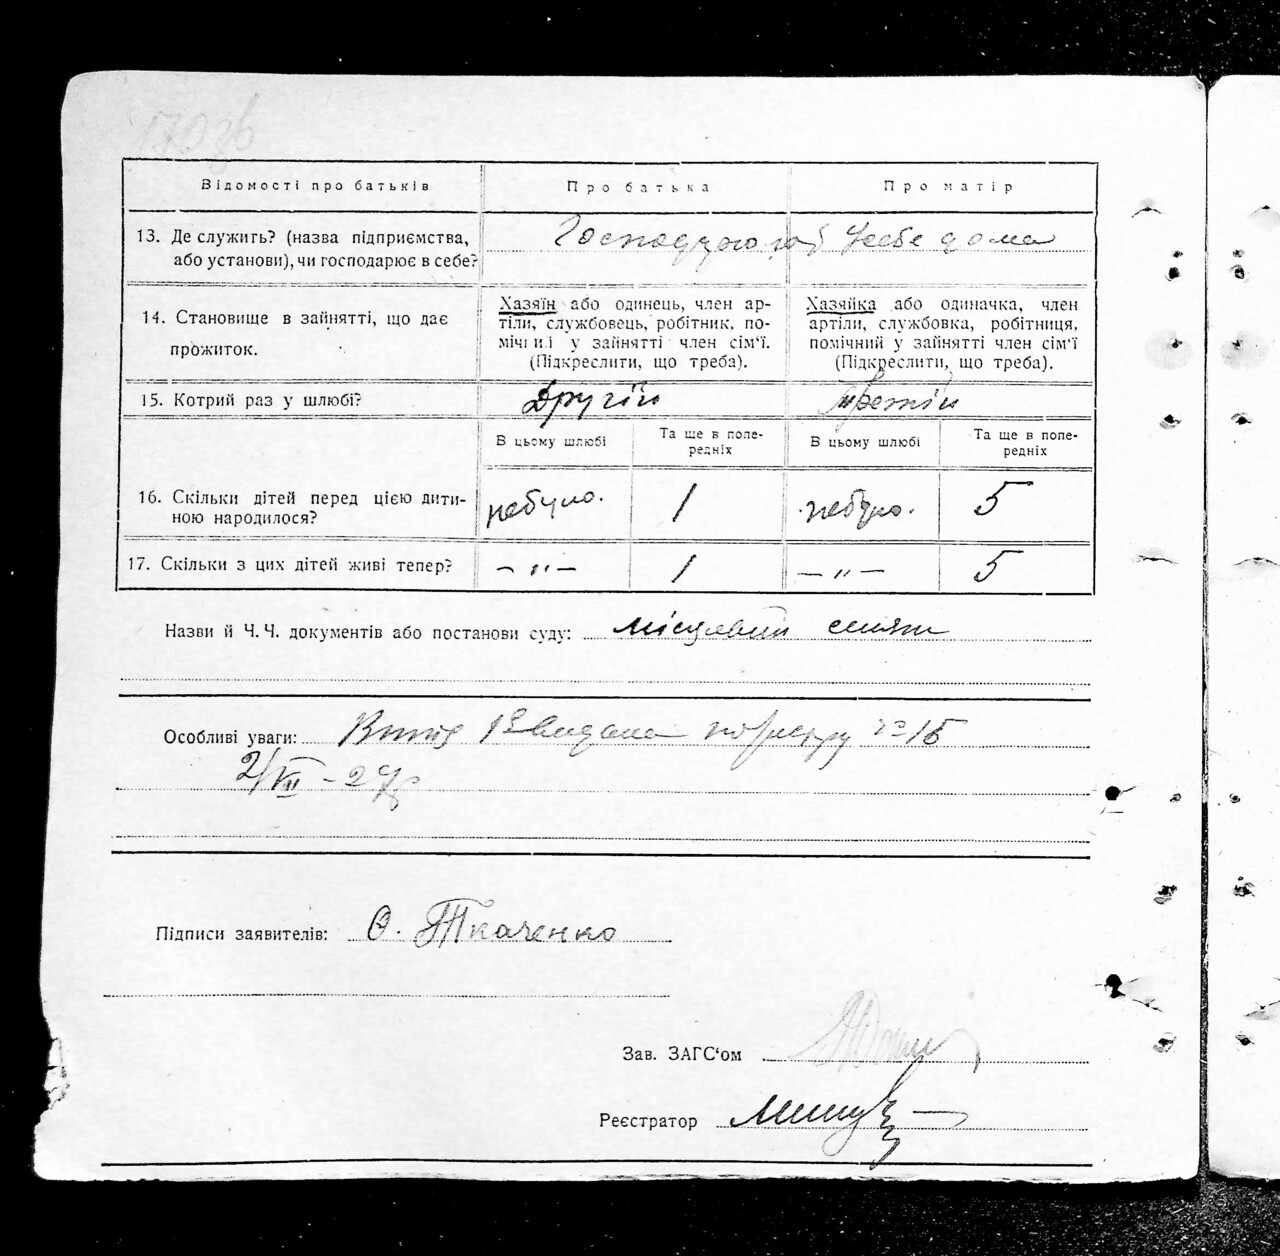 170зв
Відомості про батьків
Про батька
Про матір
13. Де служить? (назва підприємства,
або установи), чи господарює в себе?
у себе дома
14. Становище в зайнятті, що дає
прожиток.
Хазяїн або одинець, член ар-
тіли, службовець, робітник, по-
мічний у зайнятті член сім'ї.
(Підкреслити, що треба).
Хазяйка або одиначка, член
артіли, службовка, робітниця,
помічний у зайнятті член сім'ї
(Підкреслити, що треба).
15. Котрий раз у шлюбі?
Другій
третій
В цьому шлюбі
Та ще в попе-
редніх
В цьому шлюбі
Та ще в попе-
редніх
16. Скільки дітей перед цією дити-
ною народилося?
небуло.
1
небуло.
5
17. Скільки з цих дітей живі тепер?
– „ –
1
– „ –
5
Назви й Ч. Ч. документів або постанови суду:
Особливі уваги: видана по реєстру № 15
Підписи заявителів: О. Ткаченко
Зав. ЗАГС'ом
Реєстратор